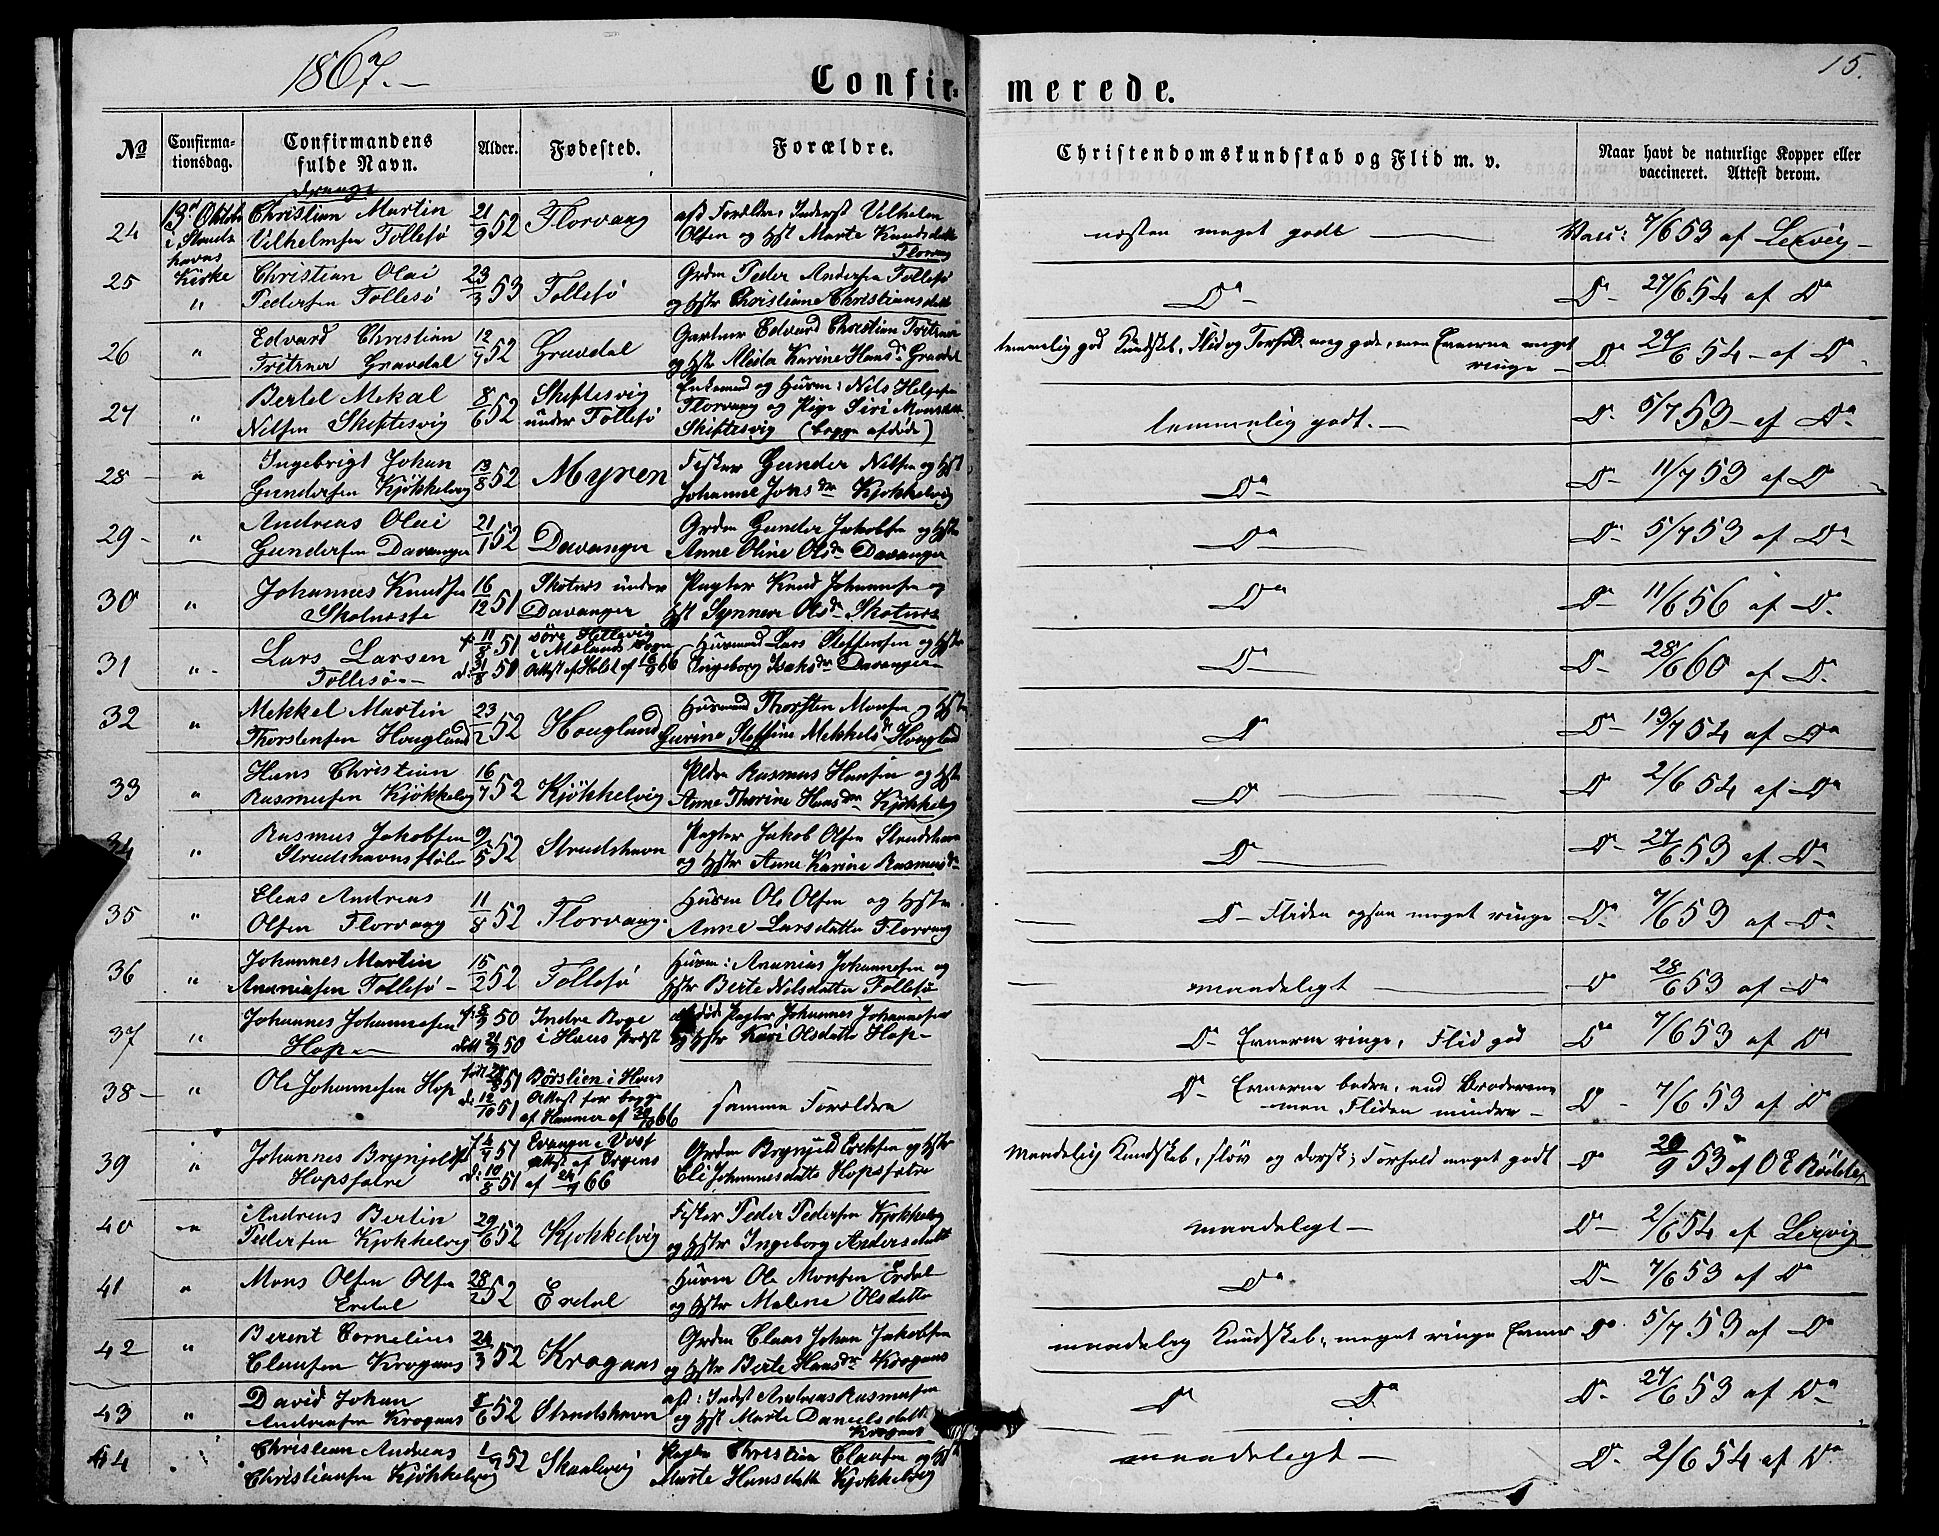 1867.
15.
Confirmerede.
No
Confirmationsdag.
Confirmandens fulde Navn.
Alder.
Fødested.
Forældre.
Christendomskundskab og Flid m. v.
Naar havt de naturlige Kopper eller vaccineret. Attest derom.
Drenge
24 Christian Martin Vilhelmsen Follesø 21/9 52 Florvaag Vilhelm Olsen og Marte Knudsdatter Florvaag næsten meget godt Vacc: 7/6 53 af Lexvig
25 " Christian Olai Pedersen Follesø 23/3 53 Follesø Grdm Peder Andersen Follesø og Hstr Christiane Christiansdatter Do Do 27/6 54 af Do
26 " Edvard Christian Fritzner Gravdal 12/7 52 Gravdal Gartner Edvard Christian Fritzner og Hstr Karine Hansdr Gravdal temmelig god Kundskab, Flid og Forhold meg. gode, men Evnerne meget ringe Do 27/6 54 af Do
27 " Bertel Mekal Nilsen Skiftesvig 8/6 52 Skiftesvig under Follesø Enkemand og Husm: Nils Helgesen Florvaag og Pige Siri Monsdatter Skiftesvig (begge afdøde) temmelig godt. Do 5/7 53 af Do
28 " Ingebrigt Johan Gundersen Kjøkkelvig 13/8 52 Myren Fisker Gunder Nilsen og Hstr Johanne Jonsdr Kjøkkelvig Do Do 11/7 53 af Do
29 " Andreas Olai Gundersen Davanger 21/1 52 Davanger Grdm Gunder Jakobsen og Hstr Anne Oline Olsdr Davanger Do Do 5/7 53 af Do
30 " Johannes Knudsen Skotnæste 16/12 51 Skotnæs under Davanger Pagter Knud Johannesen og Hst Synneve Olsdr Skotnæs Do Do 11/6 56 af Do
31 " Lars Larsen Follesø f. 11/8 51 d: 31/8 50 Husmand Lars Steffensen og Hstr Ingeborg Isaksdr Davanger Do Do 28/6 60 af Do
32 " Mekkel Martin Thorstensen Hougland 23/2 52 Hougland Husmand Thorsten Monsen og Hstr Gurine Steffine Mekkelsdr Hougland Do Do 19/7 54 af Do
33 " Hans Christian Rasmusen Kjøkkelvig 16/7 52 Kjøkkelvig Rasmus Hansen og Hstr Anne Thorine Hansdr Kjøkkelvig Do Do 2/6 54 af Do
34 " Rasmus Jakobsen Strudshavnsstølen 9/5 52 Strudshavn Pagter Jakob Olsen Strudshavn og Hstr Anne Karine Rasmusdr Do Do 27/6 53 af Do
35 " Elias Andreas Olsen Florvaag 11/8 52 Florvaag Husm Ole Olsen og Hstr Anne Larsdatter Florvaag Do Fliden ogsaa meget ringe Do 7/6 53 af Do
36 " Johannes Martin Ananiasen Follesø 15/2 52 Follesø Husm: Ananias Johannesen og Hstr Berte Nilsdatter Follesø maadeligt Do 28/6 53 af Do
37 " Johannes Johannesen Hop Indre Boge i Hous Præst afdød Pagter Johannes Johannesen og Hstr Kari Olsdatter Hop Do Evnerne ringe, Flid god Do 7/6 53 af Do
38 " Ole Johannesen Hop d: 12/10 51 Børslien i Hous Attest for begge af Hammer af 66 samme Forældre Do Evnerne bedre, end Broderens men Fliden mindre Do 7/6 53 af Do
39 " Johannes Brynjulfsen Hopsfalre d: 10/8 51 Evanger i Voss Attest af Irgens af 66 Grdm Brynjulf Eriksen og Hstr Eli Johannesdatter Hopsfalre Maadelig Kundskab, sløv og dorsk; Forhold meget godt Do 20/9 53 af O E
40 " Andreas Bertin Pedersen Kjøkkelvig 29/6 52 Kjøkkelvig Fisker Peder Pedersen Kjøkkelvig og Hstr Ingeborg Andersdatter maadeligt Do 2/6 54 af Lexvig
41 " Mons Olsen Olsen Erdal 28/2 52 Erdal Husm Ole Monsen Erdal og Hstr Malene Olsdatter Do Do 7/6 53 af Do
42 " Berent Cornelius Clausen Krogaas 24/3 52 Krogaas Grdm Claus Johan Jakobsen og Hstr Berte Hansdr Krogaas maadelig Kundskab, meget ringe Evner Do 5/7 53 af Do
43 " David Johan Andreasen Krogaas 52 Strudshavn Andreas Rasmusen og Hst Marte Danielsdatter Krogaas Do Do Do 27/6 53 af Do
44 Christian Andreas Christiansen Kjøkkelvig 1/9 52 Skaalevig Pagter Christian Clausen og Hst Marte Hansdatter Kjøkkelvig maadeligt Do 2/6 54 af Do